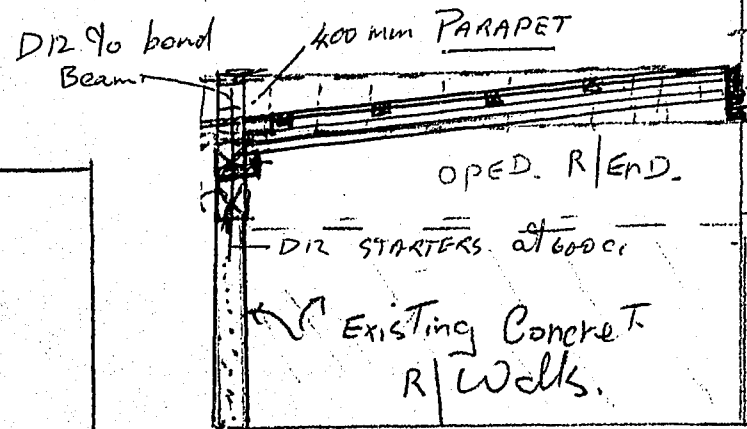 D12 % bond
Beam
400 mm PARAPET
OPED. R/END.
D12 STARTERS. at 600 c,
Existing Concret
R/Walls.